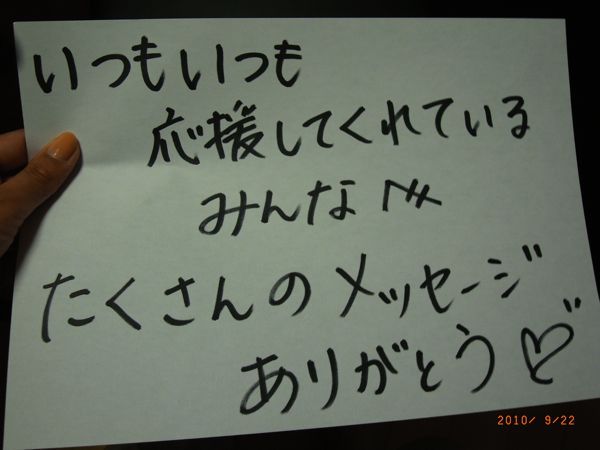 いつもいつも
応援してくれている
みんなへ
たくさんのメッセージ
ありがとう♡
2010/ 9/22